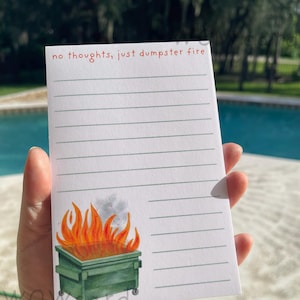 no thoughts, just dumpster fire